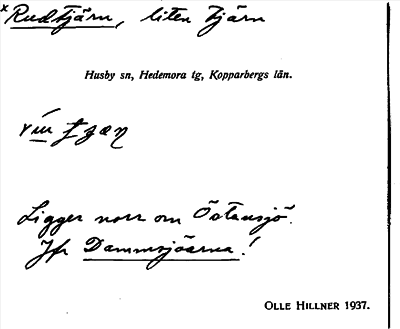 x Rudtjärn, liten tjärn
Husby sn, Hedemora tg, Kopparbergs län.
Ligger norr om Östansjö.
Jfr Dammsjöarna!
OLLE HILLNER 1937.